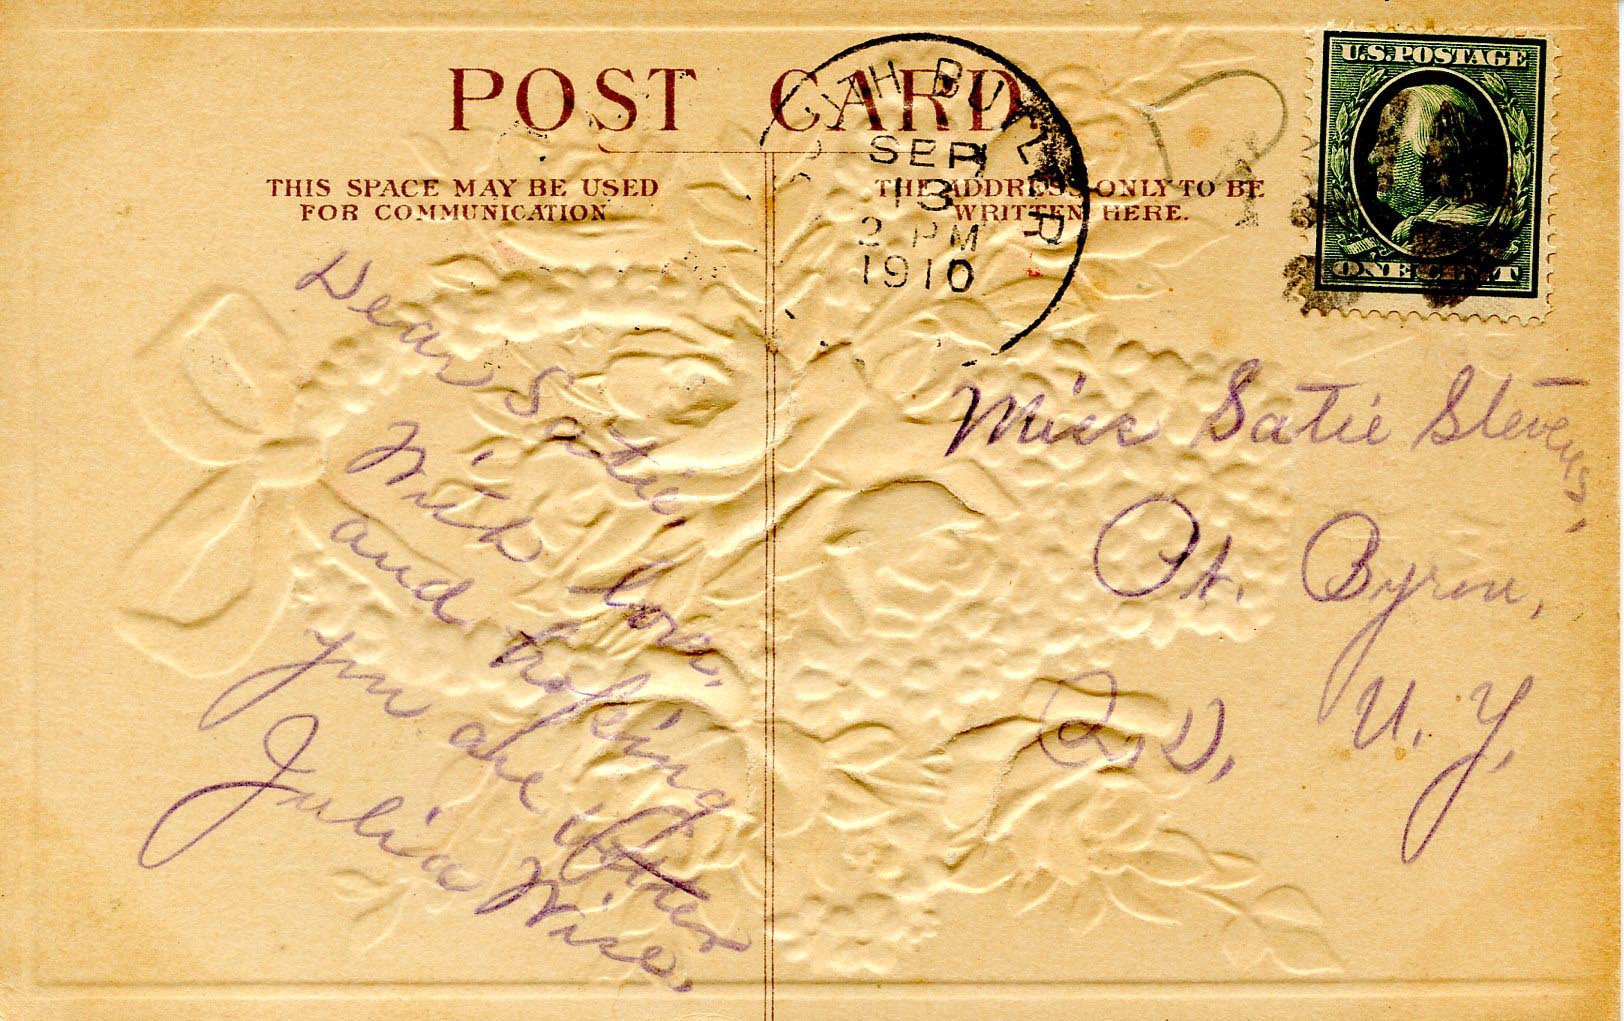 POST CARD.
THIS SPACE MAY BE USED
FOR COMMUNICATION
THE ADDRESS ONLY TO BE
WRITTEN HERE.
SOUTH BUTLER
SEP
13
2 PM
1910
U.S. POSTAGE
ONE CENT
Dear Satie,
With love,
and hoping
you are better
Julia Wise.
Miss Satie Stevens,
Pt. Byron,
N. Y.